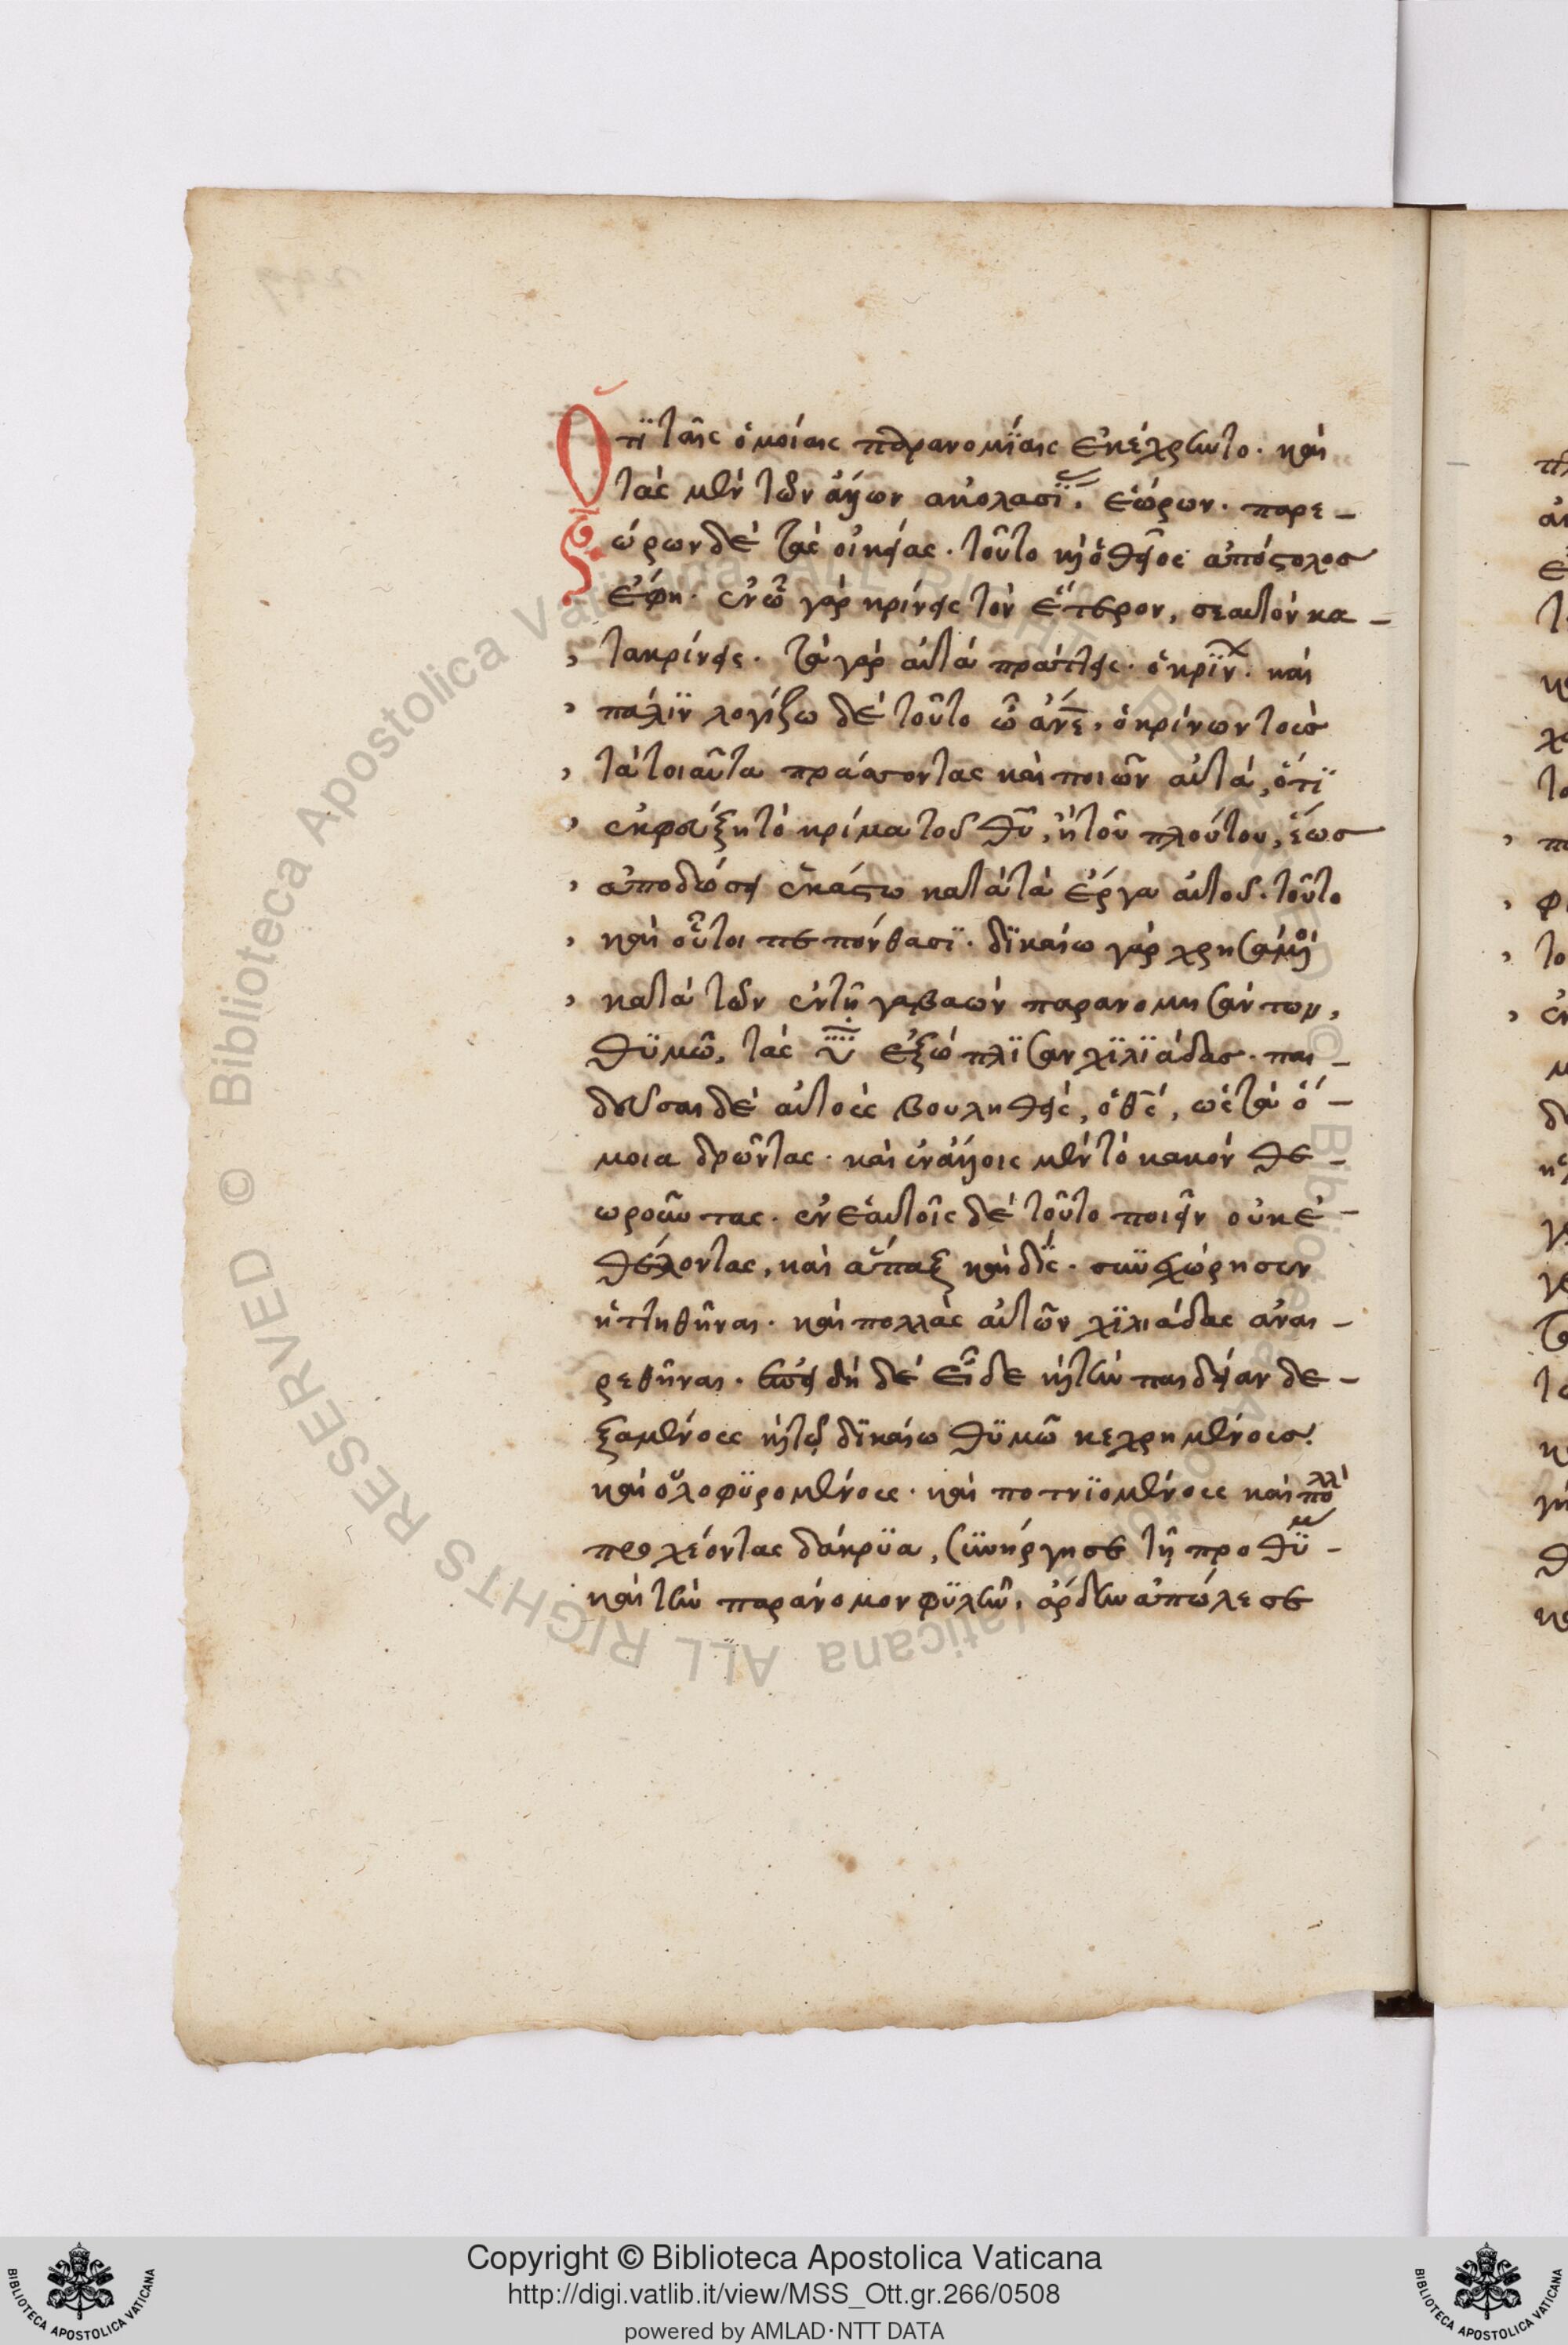 Ὅτι ταῖς ὁμοίαις παρανομίαις ἐκέχρωντο. καὶ
τὰς μὲν τῶν ἄλλων ἀκολασί. ἑώρων. παρε-
ώρων δὲ τὰς οἰκείας. τοῦτο καὶ ὁ θεῖος ἀπόστολος
ἔφη. ἐν ὧ γὰρ κρίνεις τὸν ἕτερον, σεαυτὸν κα-
τακρίνεις. τὰ γὰρ αὐτὰ πράττεις. ὁ κρίν. καὶ
πάλιν λογίζω δὲ τοῦτο ὦ ἄνε, ὁ κρίνων τοὺς
τὰ τοιαῦτα πράσσοντας καὶ ποιῶν αὐτά, ὅτι
ἐκφεύξη τὸ κρίμα τοῦ θυ, ἢ τοῦ πλούτου, ἕως
ἀποδώσει ἑκάστω κατὰ τὰ ἔργα αὐτοῦ. τοῦτο
καὶ οὗτοι πεπόνθασι. δικαίω γὰρ χρησάμενοι
κατὰ τῶν ἐν τῆ γαβαὼν παρανομησάντων,
θυμῶ, τὰς υ ἐξώπλισαν χιλιάδας. παι-
δεῦσαι δὲ αὐτοὺς βουληθεὶς, ὁ θς, ὡς τὰ ὅ-
μοια δρῶντας. καὶ ἐν ἄλλοις μὲν τὸ κακὸν θε-
ωροῦντας. ἐν ἑαυτοῖς δὲ τοῦτο ποιεῖν οὐκ ἐ-
θέλοντας, καὶ ἅπαξ καὶ δὶς. συνεχώρησεν
ἡττηθῆναι. καὶ πολλὰς αὐτῶν χιλιάδας ἀναι-
ρεθῆναι. ἐπειδὴ δὲ εἶδε καὶ τὴν παιδείαν δε-
ξαμένους καὶ τῶ δικαίω θυμῶ κεχρημένους.
καὶ ὀλοφυρομένους. καὶ ποτνιομένους καὶ πολλὰ
προχέοντας δάκρυα, συνήργησε τῆ προθυμ-
καὶ τὴν παράνομον φυλὴν, ἄρδην ἀπώλεσε
Copyright © Biblioteca Apostolica Vaticana
http://digi.vatlib.it/view/MSS_Ott.gr.266/0508
powered by AMLAD·NTT DATA
BIBLIOTECA APOSTOLICA VATICANA
BIBLIOTECA APOSTOLICA VATICANA
Biblioteca Apostolica Vaticana ALL RIGHTS RESERVED © Biblioteca Apostolica Vaticana ALL RIGHTS RESERVED ©